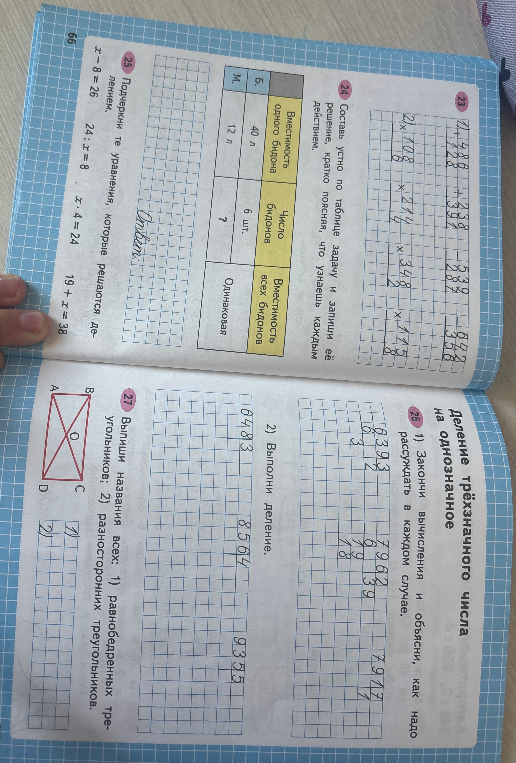 66
23 1) + 486 + 238 - 539 - 642
128 397 287 356
2) × 108 × 214 × 348 × 115
6 4 2 8
24 Составь устно по таблице задачу и запиши её
решение, кратко поясняя, что узнаешь каждым
действием.
Вместимость одного бидона Число бидонов Вместимость всех бидонов
Б. 40 л 6 шт. Одинаковая
М. 12 л ?
Ответ:
25 Подчеркни те уравнения, которые решаются де-
лением.
x − 8 = 26 24 : x = 8 x · 4 = 24 19 + x = 38
Деление трёхзначного числа
на однозначное
26 1) Закончи вычисления и объясни, как надо
рассуждать в каждом случае.
639 3 796 2 791 7
6 2 6 39 1
3 19
18
2) Выполни деление.
648 3 856 4 935 5
27 Выпиши названия всех: 1) равнобедренных тре-
угольников; 2) разносторонних треугольников.
B C
O
A D
1)
2)